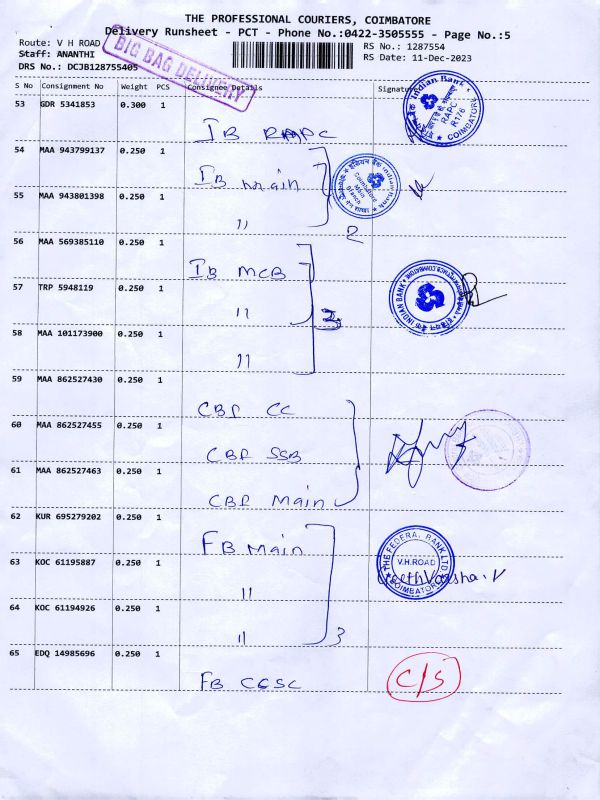 THE PROFESSIONAL COURIERS, COIMBATORE
Delivery Runsheet - PCT - Phone No.:0422-3505555 - Page No.:5
Route: V H ROAD
RS No.: 1287554
Staff: ANANTHI
RS Date: 11-Dec-2023
DRS No.: DCJB128755405
BIG BAG DELIVERY
S No Consignment No Weight PCS Consignee Details Signature
53 GDR 5341853 0.300 1
IB RAPC
54 MAA 943799137 0.250 1
IB main
55 MAA 943801398 0.250 1
" 2
56 MAA 569385110 0.250 1
IB MCB
57 TRP 5948119 0.250 1
" 3
58 MAA 101173900 0.250 1
"
59 MAA 862527430 0.250 1
CBI CC
60 MAA 862527455 0.250 1
CBI SSB
61 MAA 862527463 0.250 1
CBI Main
62 KUR 695279202 0.250 1
FB Main
63 KOC 61195887 0.250 1
"
64 KOC 61194926 0.250 1
" 3
65 EDQ 14985696 0.250 1
FB CCSC
C/S
Indian Bank
RAPC
R176
COIMBATORE
इंडियन बैंक Indian Bank
Coimbatore
Main
Branch
INDIAN BANK इंडियन बैंक
THE FEDERAL BANK LTD.
V.H.ROAD
COIMBATORE